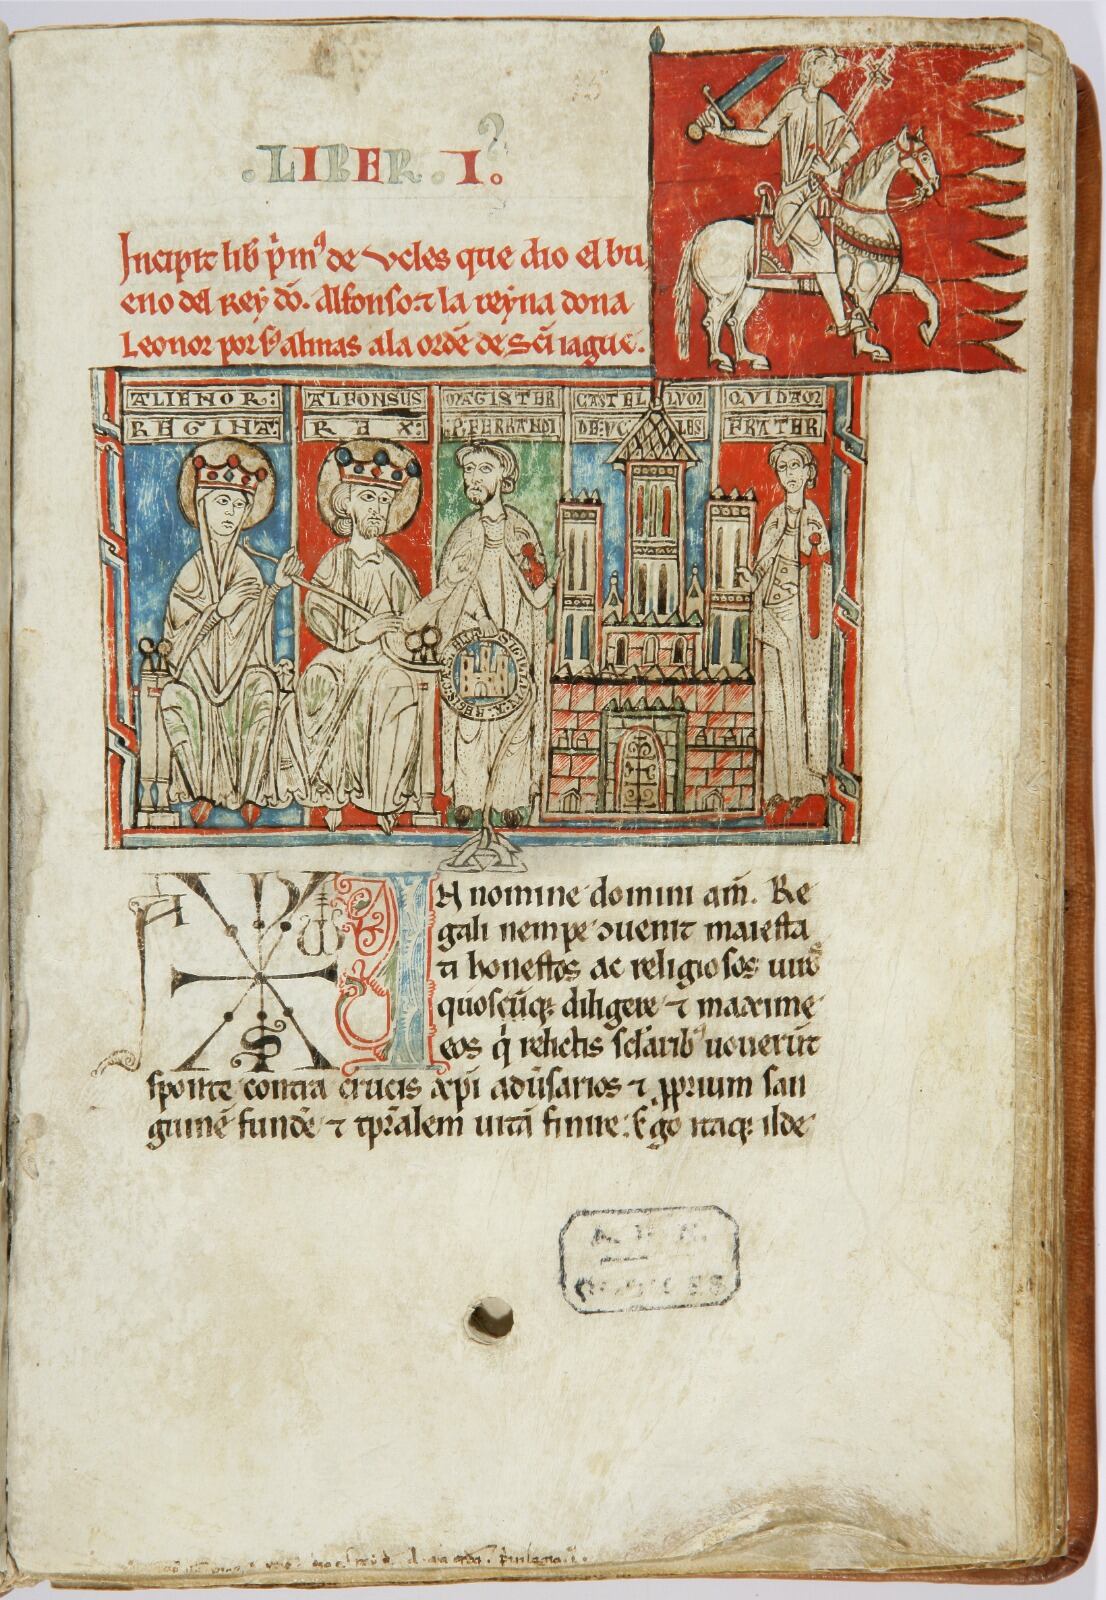 .LIBER.I.º
Incipit lib̃ p̃m⁹ de vcles que dio el bu
eno del Rey dõ. Alfonso.⁊ la reyna dona
Leonor por s̃ almas ala ordẽ de Sc̃i iague.
ALIENOR:
REGINA:
ALFONSUS
REX:
MAGISTER
P. FERRANDI
CASTELLUM
DE:VCLES
QVIDAM
FRATER
SIGILLVM
REGIS
IN nomine domini am̃. Re
gali nempe ɔuenit maiesta
ti honestos ac religiosos uiro⁹
quoscũq; diligere ⁊ maxime
eos q̇ relictis sc̃larib⁹ uouerũt
sponte contra crucis xp̃i adũsarios ⁊ ꝓprium san
guinẽ fundẽ ⁊ tp̃ralem uitã finire. Ego itaq; ilde
A. H. N.